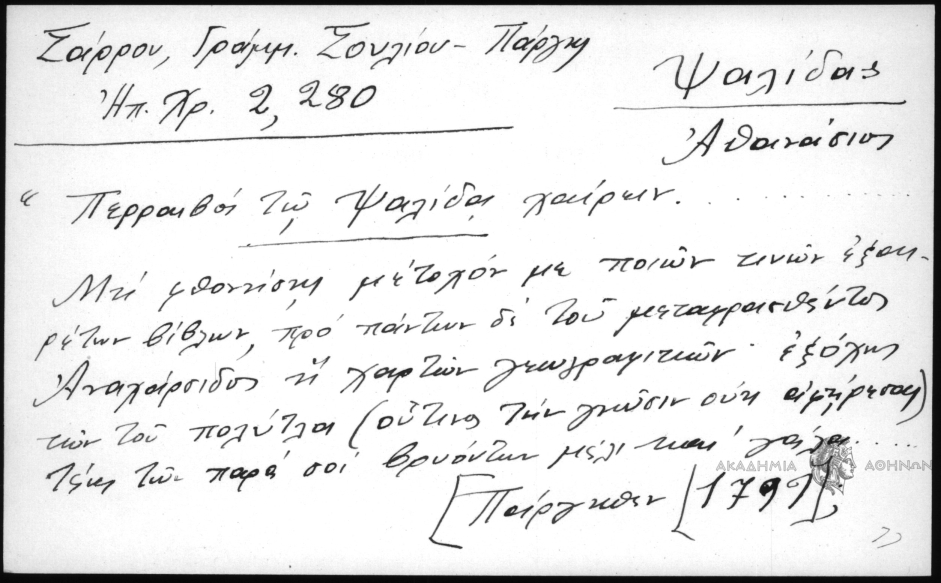 Σάρρου, Γράμμ. Σουλίου - Πάργης
Ἠπ. Χρ. 2, 280
Ψαλίδας
Ἀθανάσιος
“ Περραιβός τῷ Ψαλίδᾳ χαίρειν. . . . . . . . . .
Μή φθονήσῃς μέτοχόν με ποιῶν τινῶν ἐξαι-
ρέτων βίβλων, πρό πάντων δέ τοῦ μεταφρασθέντος
Ἀναχάρσιδος ἤ χαρτῶν γεωγραφικῶν· ἐξόχως
τῶν τοῦ πολύτλα (οὗτινος τήν γνῶσιν οὐκ
τῶν παρά σοί βρυόντων μέλι καί γάλα....
[Πάργηθεν [1797],
ΑΚΑΔΗΜΙΑ ΑΘΗΝΩΝ